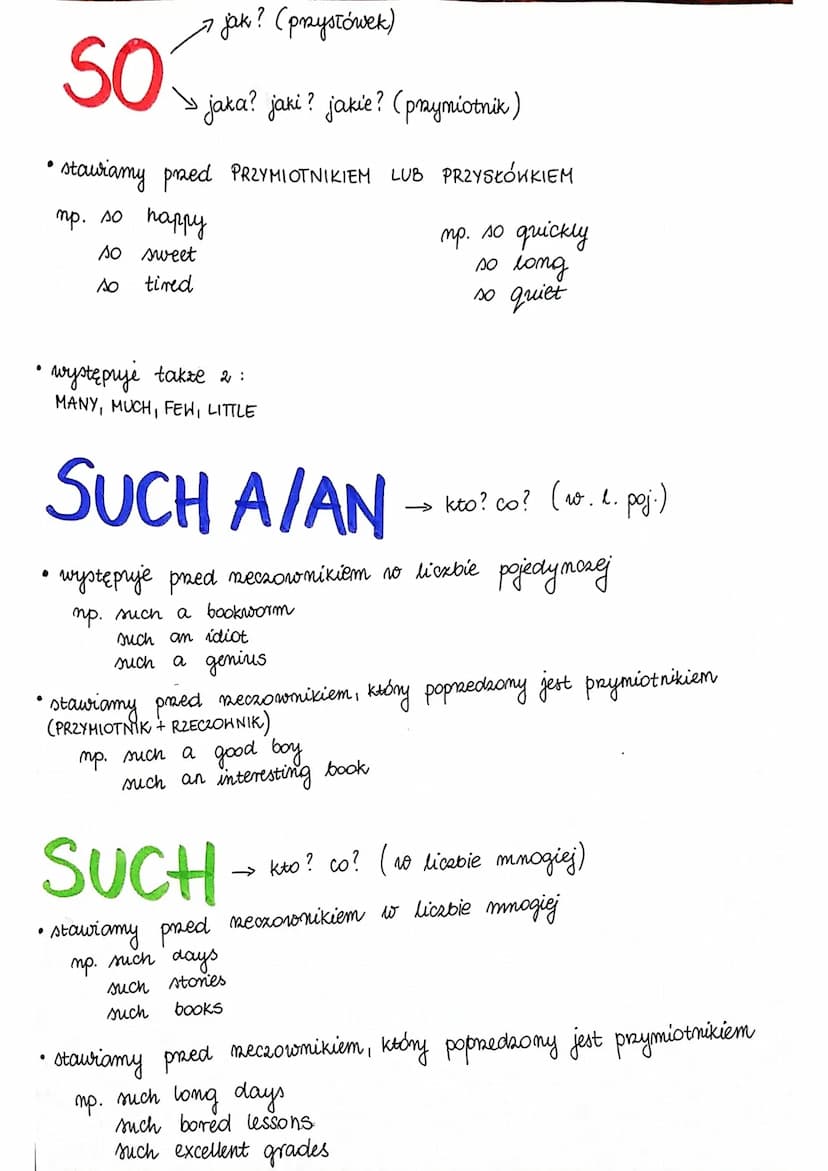 SO
→ jak? (przysłówek)
→ jaka? jaki? jakie? (przymiotnik)
• stawiamy przed PRZYMIOTNIKIEM LUB PRZYSŁÓWKIEM
np. so happy
so sweet
so tired
np. so quickly
so long
so quiet
• występuje także z :
MANY, MUCH, FEW, LITTLE
SUCH A/AN → kto? co? (w. l. poj.)
• występuje przed rzeczownikiem w liczbie pojedynczej
np. such a bookworm
such an idiot
such a genius
• stawiamy przed rzeczownikiem, który poprzedzony jest przymiotnikiem
(PRZYMIOTNIK + RZECZOWNIK)
np. such a good boy
such an interesting book
SUCH → kto? co? (w liczbie mnogiej)
• stawiamy przed rzeczownikiem w liczbie mnogiej
np. such days
such stories
such books
• stawiamy przed rzeczownikiem, który poprzedzony jest przymiotnikiem
np. such long days
such bored lessons
such excellent grades